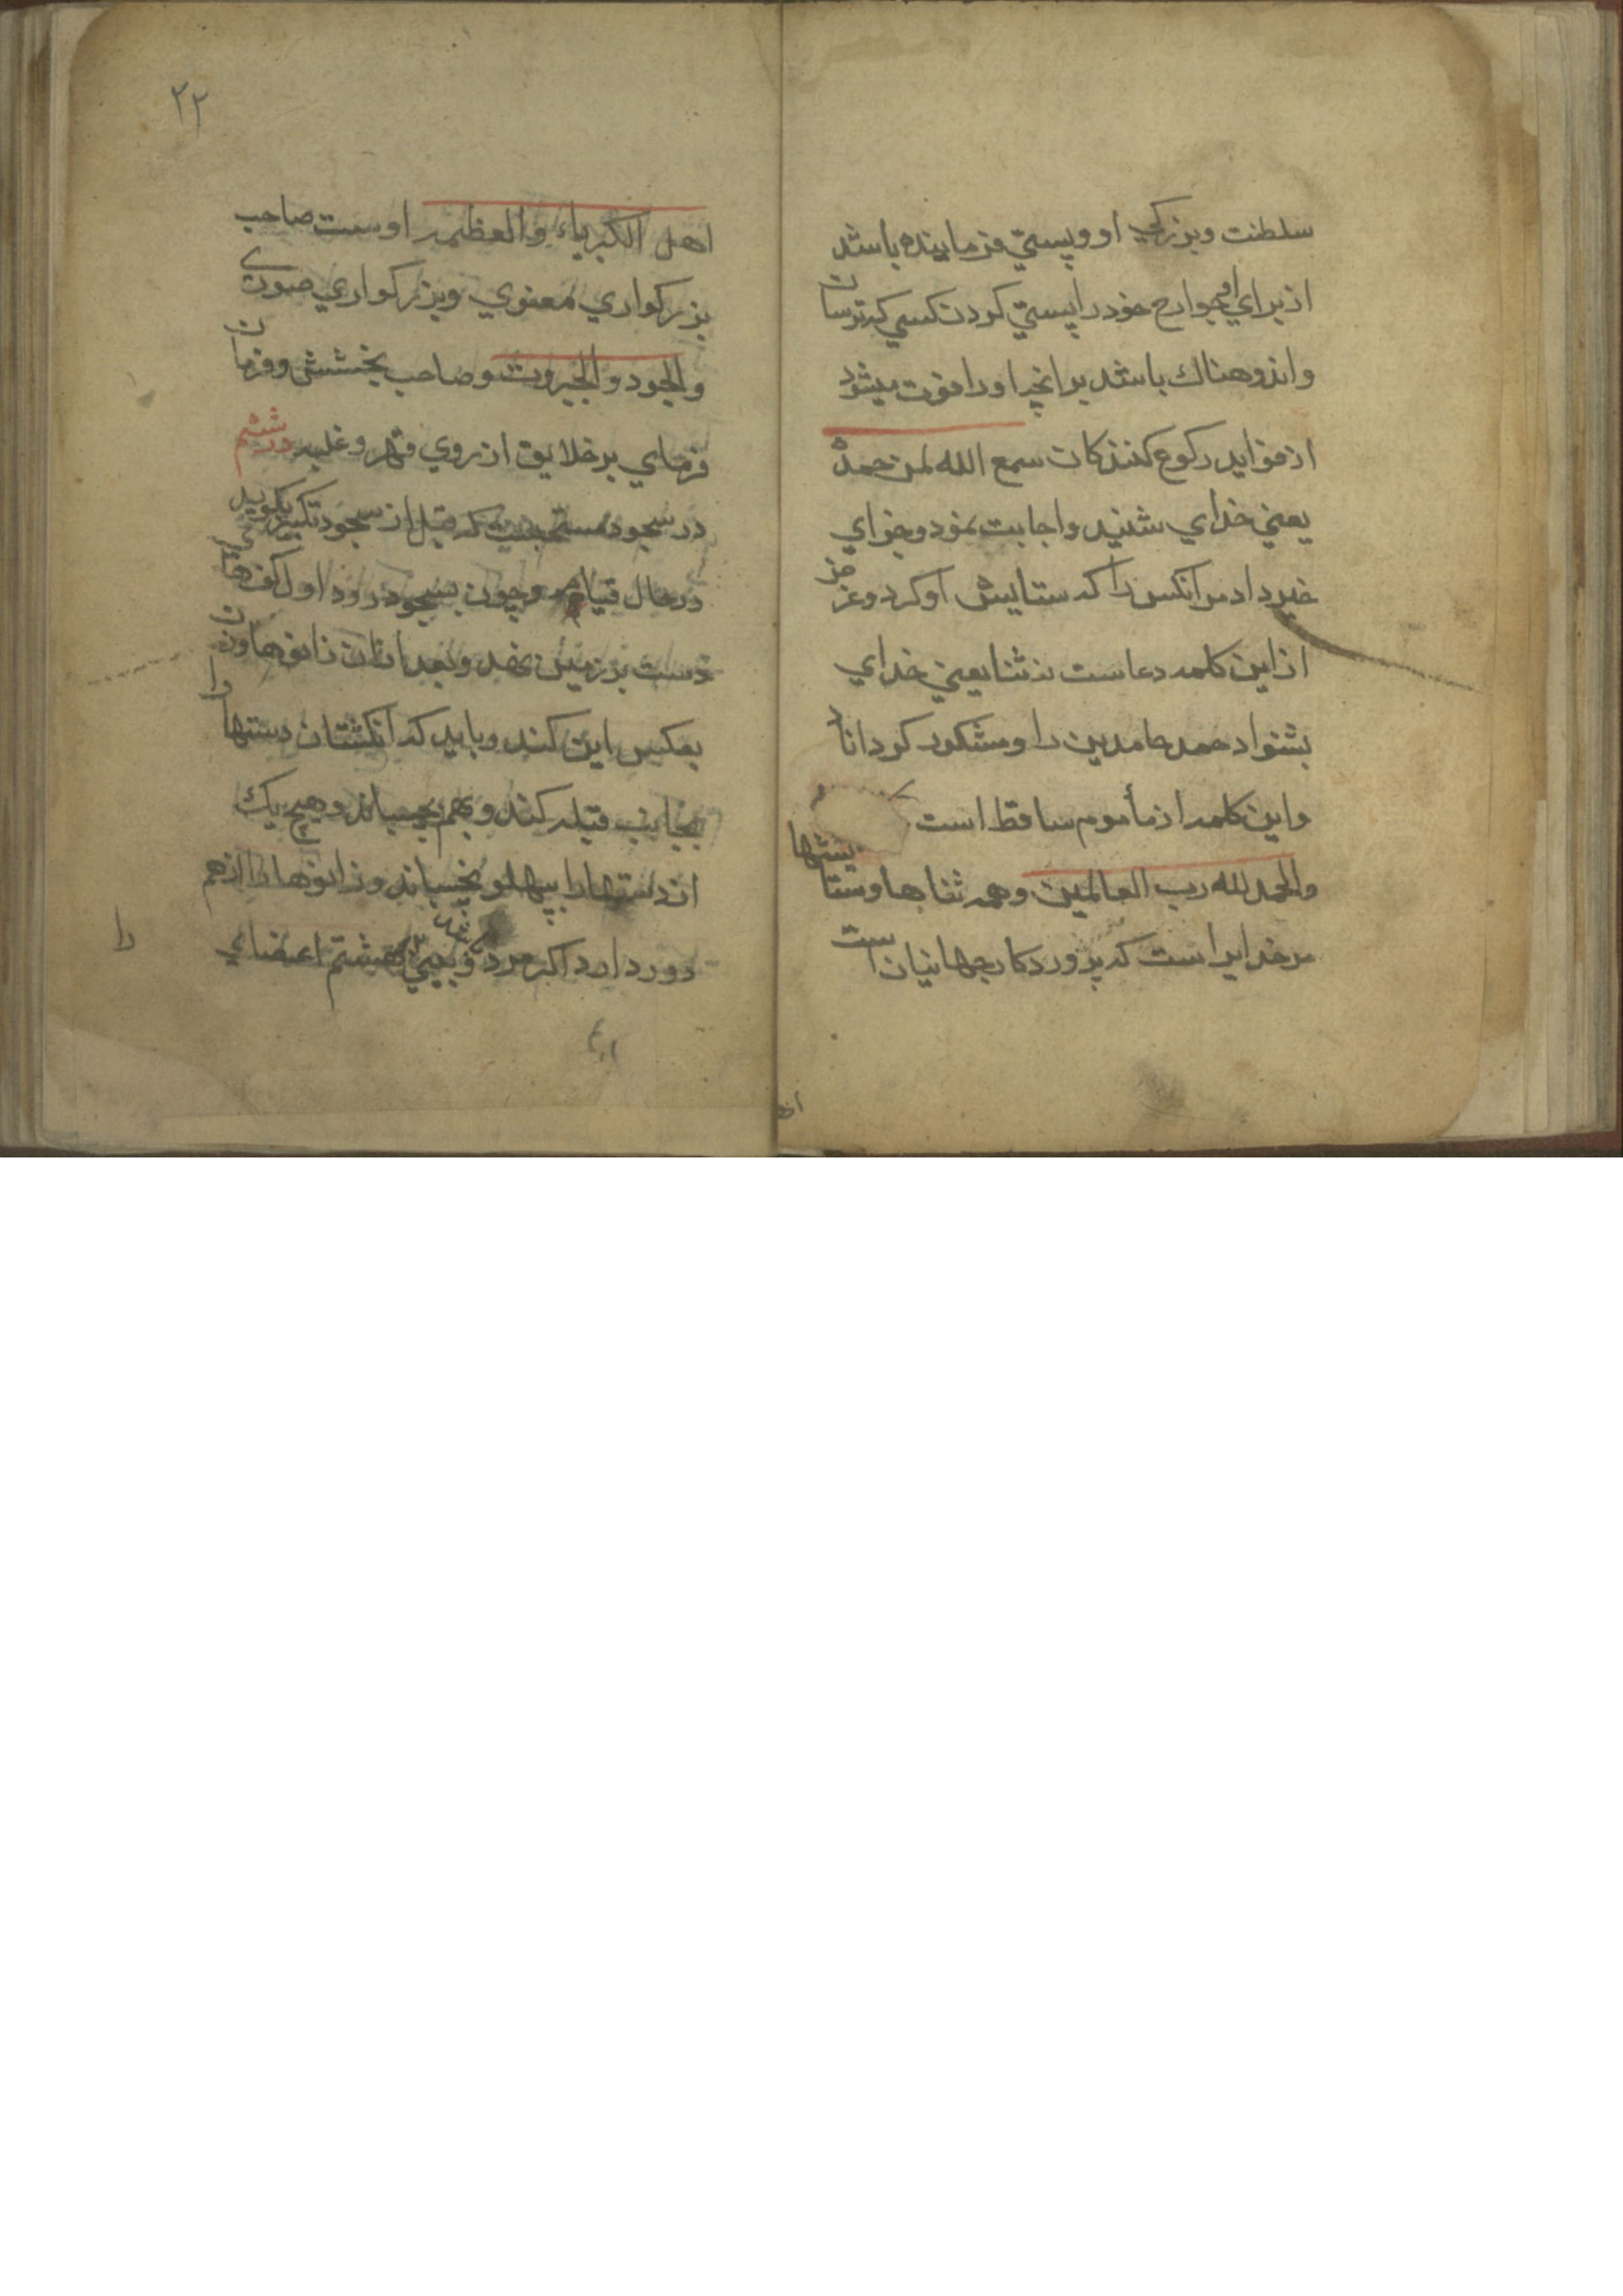 سلطنت وبزركي او وپستي فرماينده باشد
از براي او جوارح خود را پستي كردن كسي كه ترسان
واندوهناك باشد بر انچه او را فوت ميشود
از فوايد ركوع كنندكان سمع الله لمن حمده
يعني خداي شنيد واجابت نمود وجزاي
خير داد مر انكس را كه ستايش او كرد وغرض
از اين كلمه دعاست نه ثنا يعني خداي
بشنواد حمد حامدين را ومشكور كرداناد
واين كلمه از مأموم ساقط است
والحمد لله رب العالمين وهمه ثناها وستايشها
مر خدايراست كه پروردكار جهانيان است
٢٢
اهل الكبرياء والعظمه اوست صاحب
بزركواري معنوي وبزركواري صوري
والجود والجبروت وصاحب بخشش وفرمان
فرماي بر خلايق از روي قهر وغلبه در ششم
در سجود مستحبست كه قبل از سجود تكبير بكويد
در حال قيام وچون بسجود رود اول كف هاي
دست بر زمين نهد وبعد از ان زانوها وزنان
بعكس اين كنند وبايد كه انكشتان دستها را
بجانب قبله كند وبهم بچسباند وهيچ يك
از دستها را بپهلو نچسباند وزانوها را از هم
دور دارد اكر مرد باشد وبيني هشتم اعضاي
را